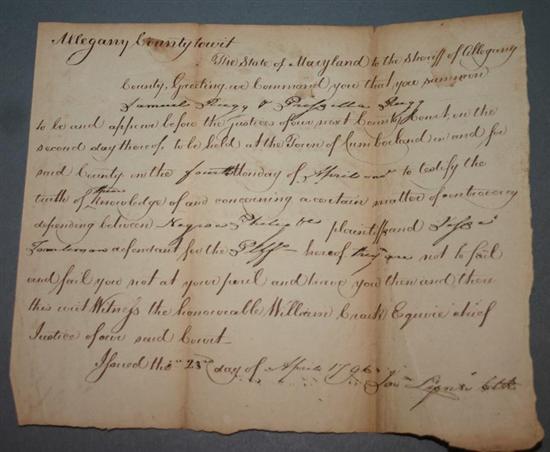 Allegany County towit
The State of Maryland to the Sheriff of Allegany
County, Greeting, we Command you that you summon
Samuel &
to be and appear before the Justices of our next County Court, on the
second day thereof, to be held at the Town of Cumberland in and for
said County on the fourth Monday of April to testify the
truth of their Knowledge of and concerning a certain matter of controversy
depending between Negroe plaintiff and
defendant for the Pltff hereof they are not to fail
and fail you not at your peril and have you then and there
this writ Witness the honourable William Craik Esquire chief
Justice of our said Court
Issued the 23rd day of April 1796
Clk